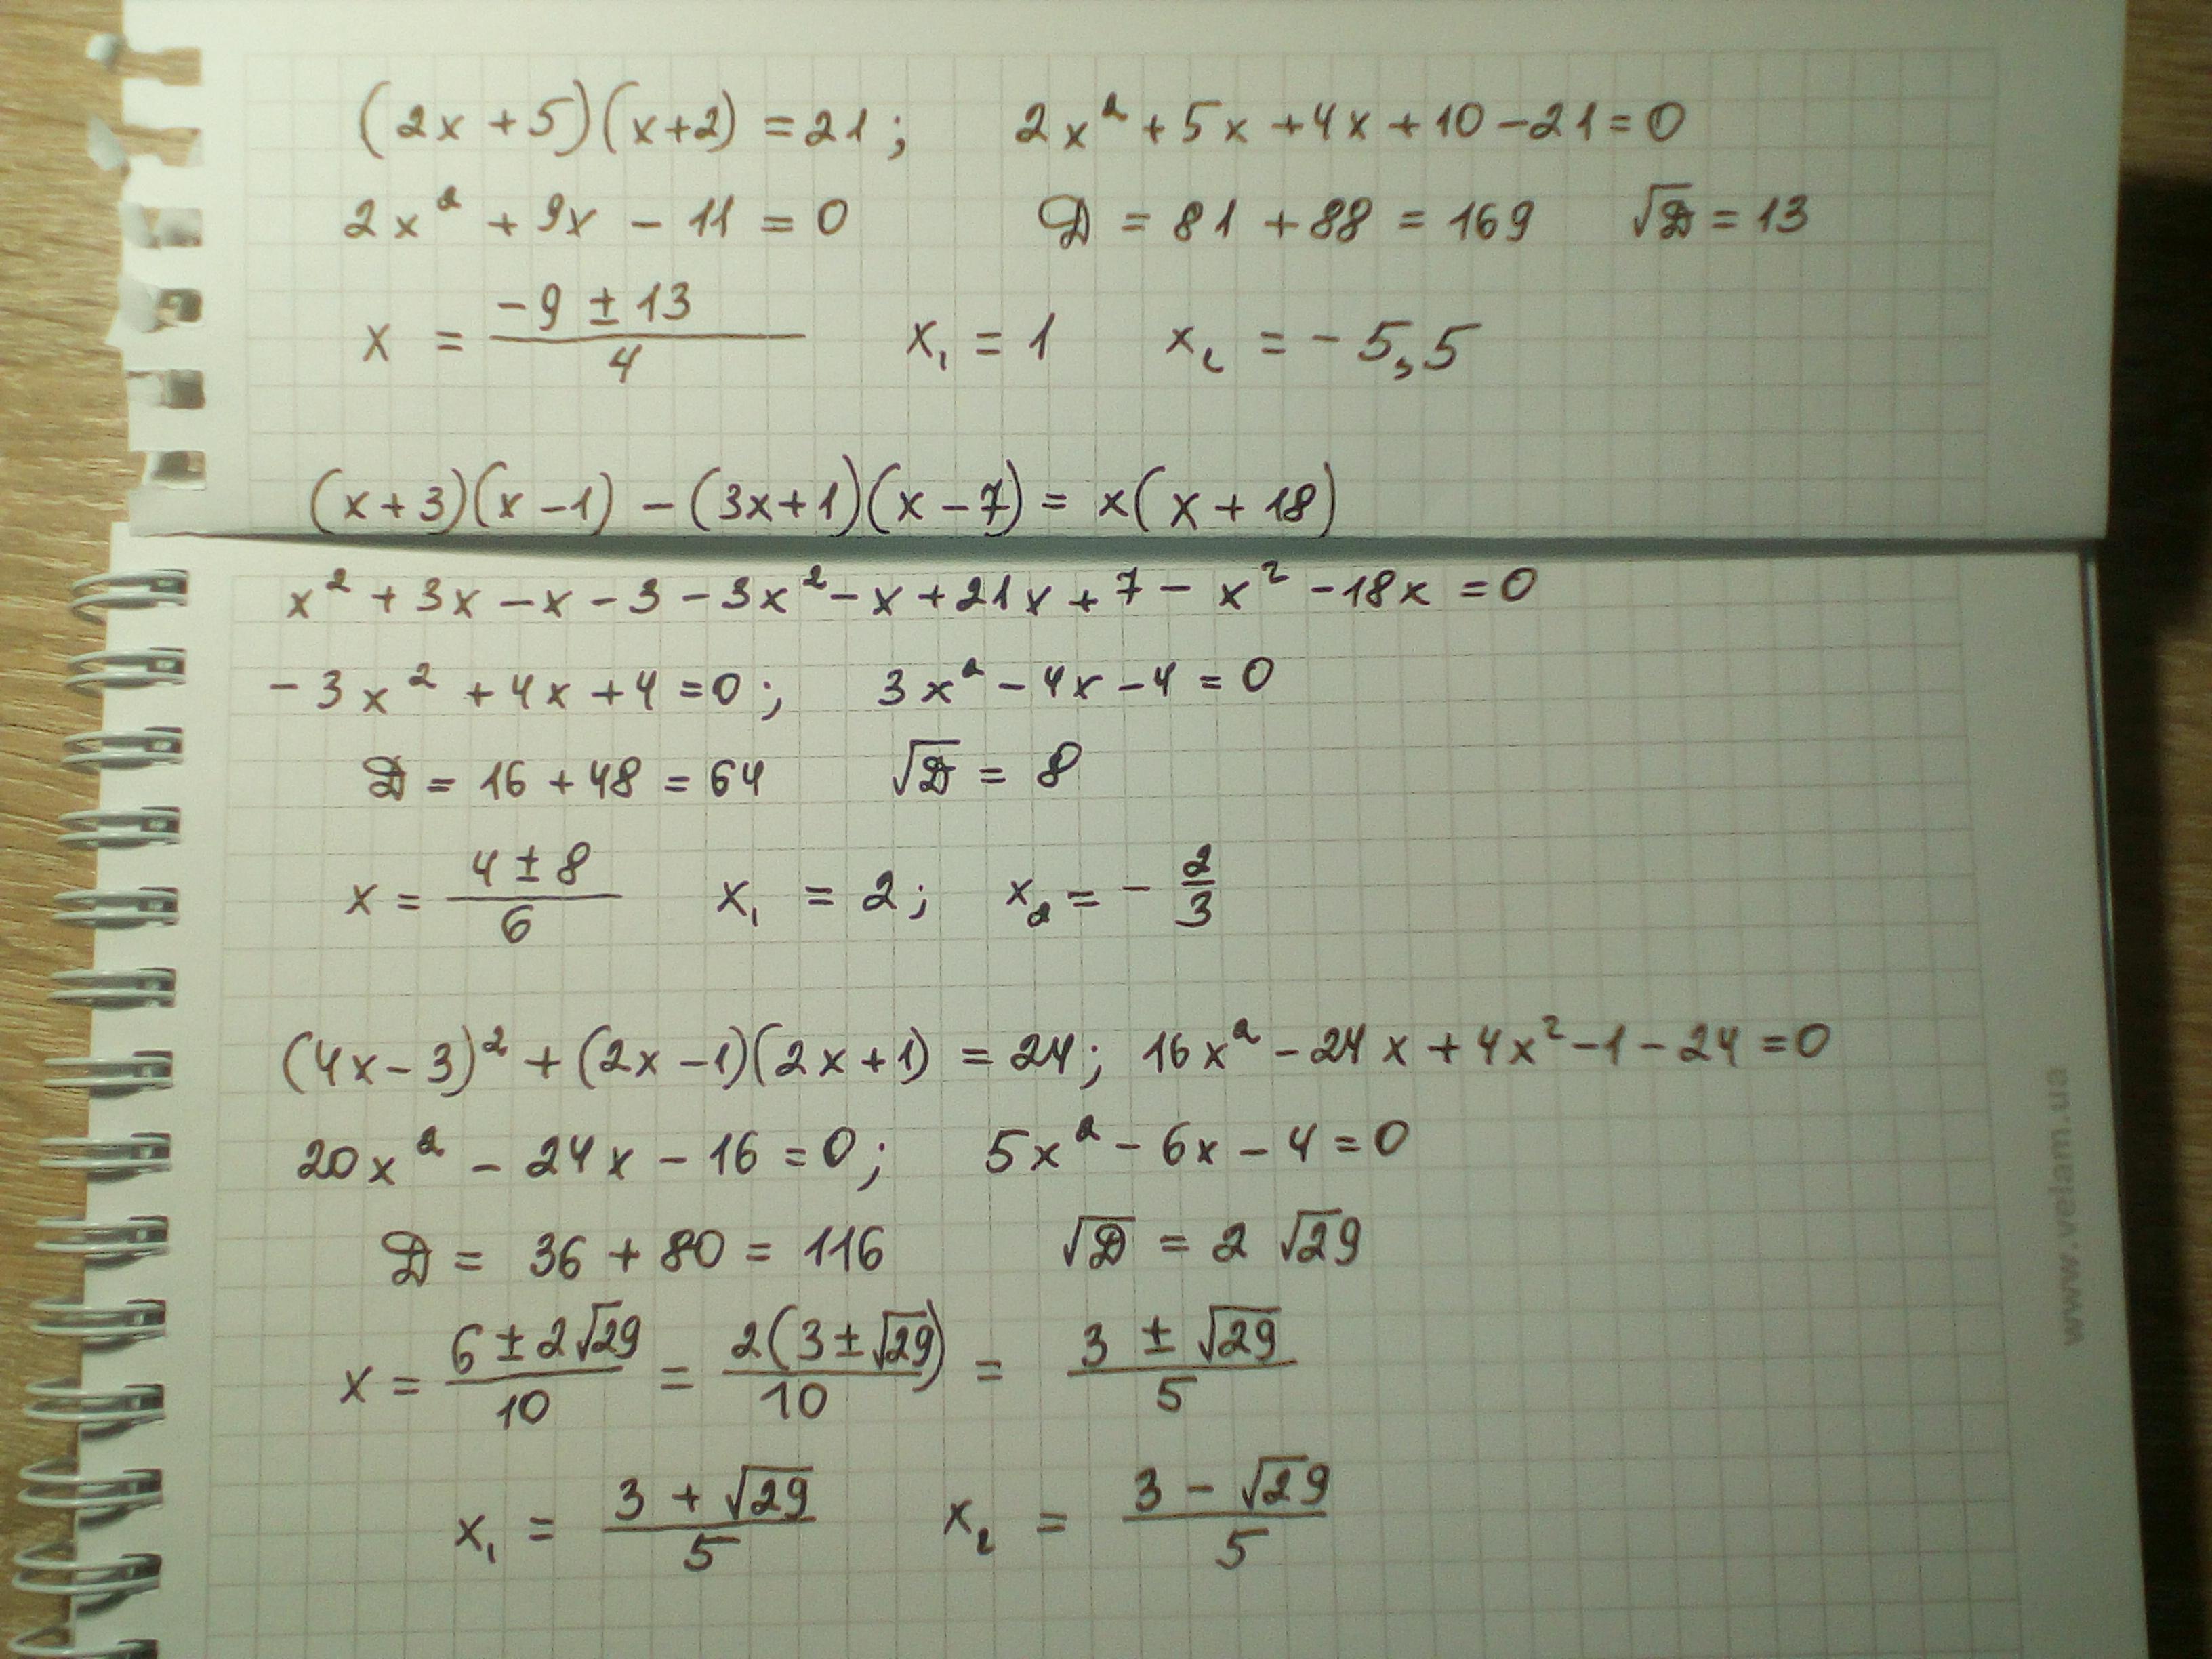 (2x + 5)(x+2) = 21; 2x² + 5x + 4x + 10 - 21 = 0
2x² + 9x - 11 = 0 D = 81 + 88 = 169 √D = 13
x = (-9 ± 13)/4 x₁ = 1 x₂ = -5,5
(x+3)(x-1) - (3x+1)(x-7) = x(x+18)
x² + 3x - x - 3 - 3x² - x + 21x + 7 - x² - 18x = 0
-3x² + 4x + 4 = 0; 3x² - 4x - 4 = 0
D = 16 + 48 = 64 √D = 8
x = (4 ± 8)/6 x₁ = 2; x₂ = -2/3
(4x-3)² + (2x-1)(2x+1) = 24; 16x² - 24x + 4x² - 1 - 24 = 0
20x² - 24x - 16 = 0; 5x² - 6x - 4 = 0
D = 36 + 80 = 116 √D = 2√29
x = (6 ± 2√29)/10 = 2(3 ± √29)/10 = (3 ± √29)/5
x₁ = (3 + √29)/5 x₂ = (3 - √29)/5
www.velam.ua